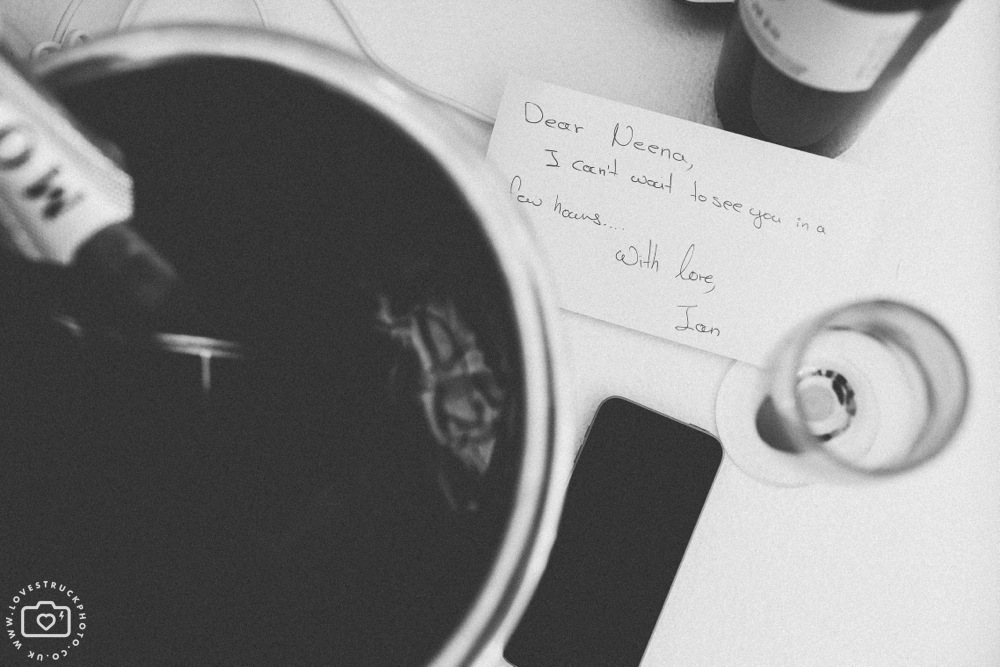 Dear Neena,
I can't wait to see you in a
few hours....
With love,
Ian
WWW.LOVESTRUCKPHOTO.CO.UK